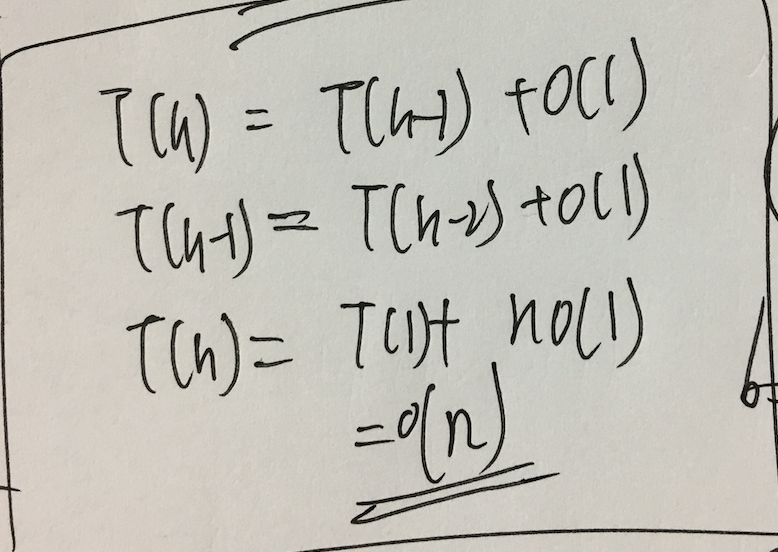 T(n) = T(n-1) + O(1)
T(n-1) = T(n-2) + O(1)
T(n) = T(1) + nO(1)
= O(n)